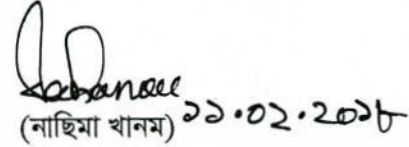 (নাছিমা খানম) ১১.০২.২০১৮